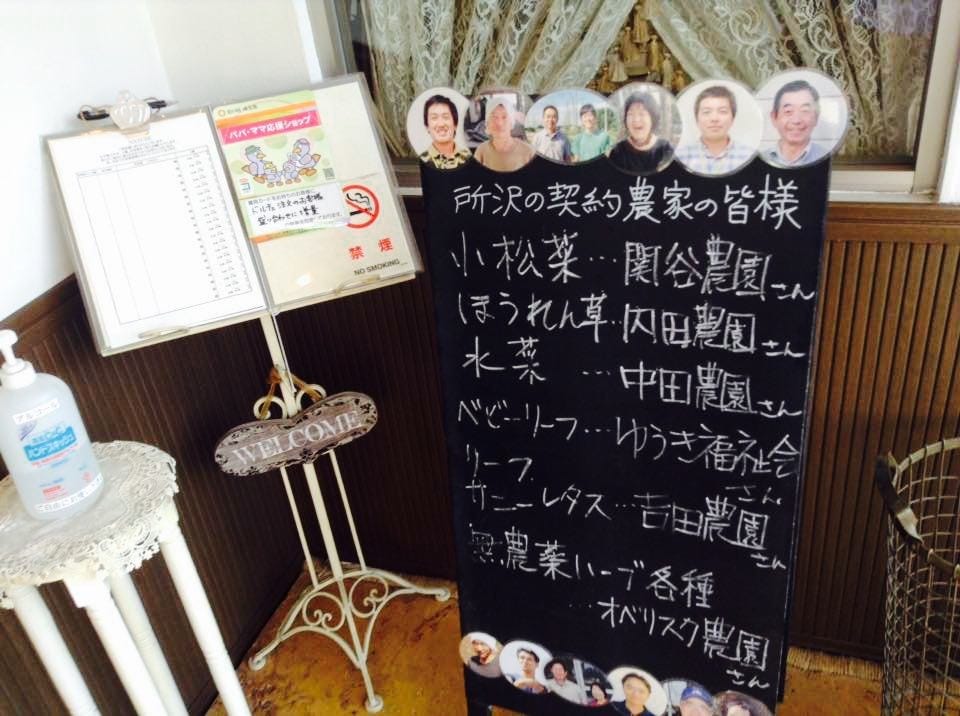 パパ・ママ応援ショップ
ドルチェ注文のお客様
盛り合わせに増量
禁煙
NO SMOKING
WELCOME
アルコール
ハンドスキッシュ
所沢の契約農家の皆様
小松菜…関谷農園さん
ほうれん草…内田農園さん
水菜…中田農園さん
ベビーリーフ…ゆうき福祉会さん
リーフ
サニーレタス…吉田農園さん
無農薬ハーブ各種
…オベリスク農園さん